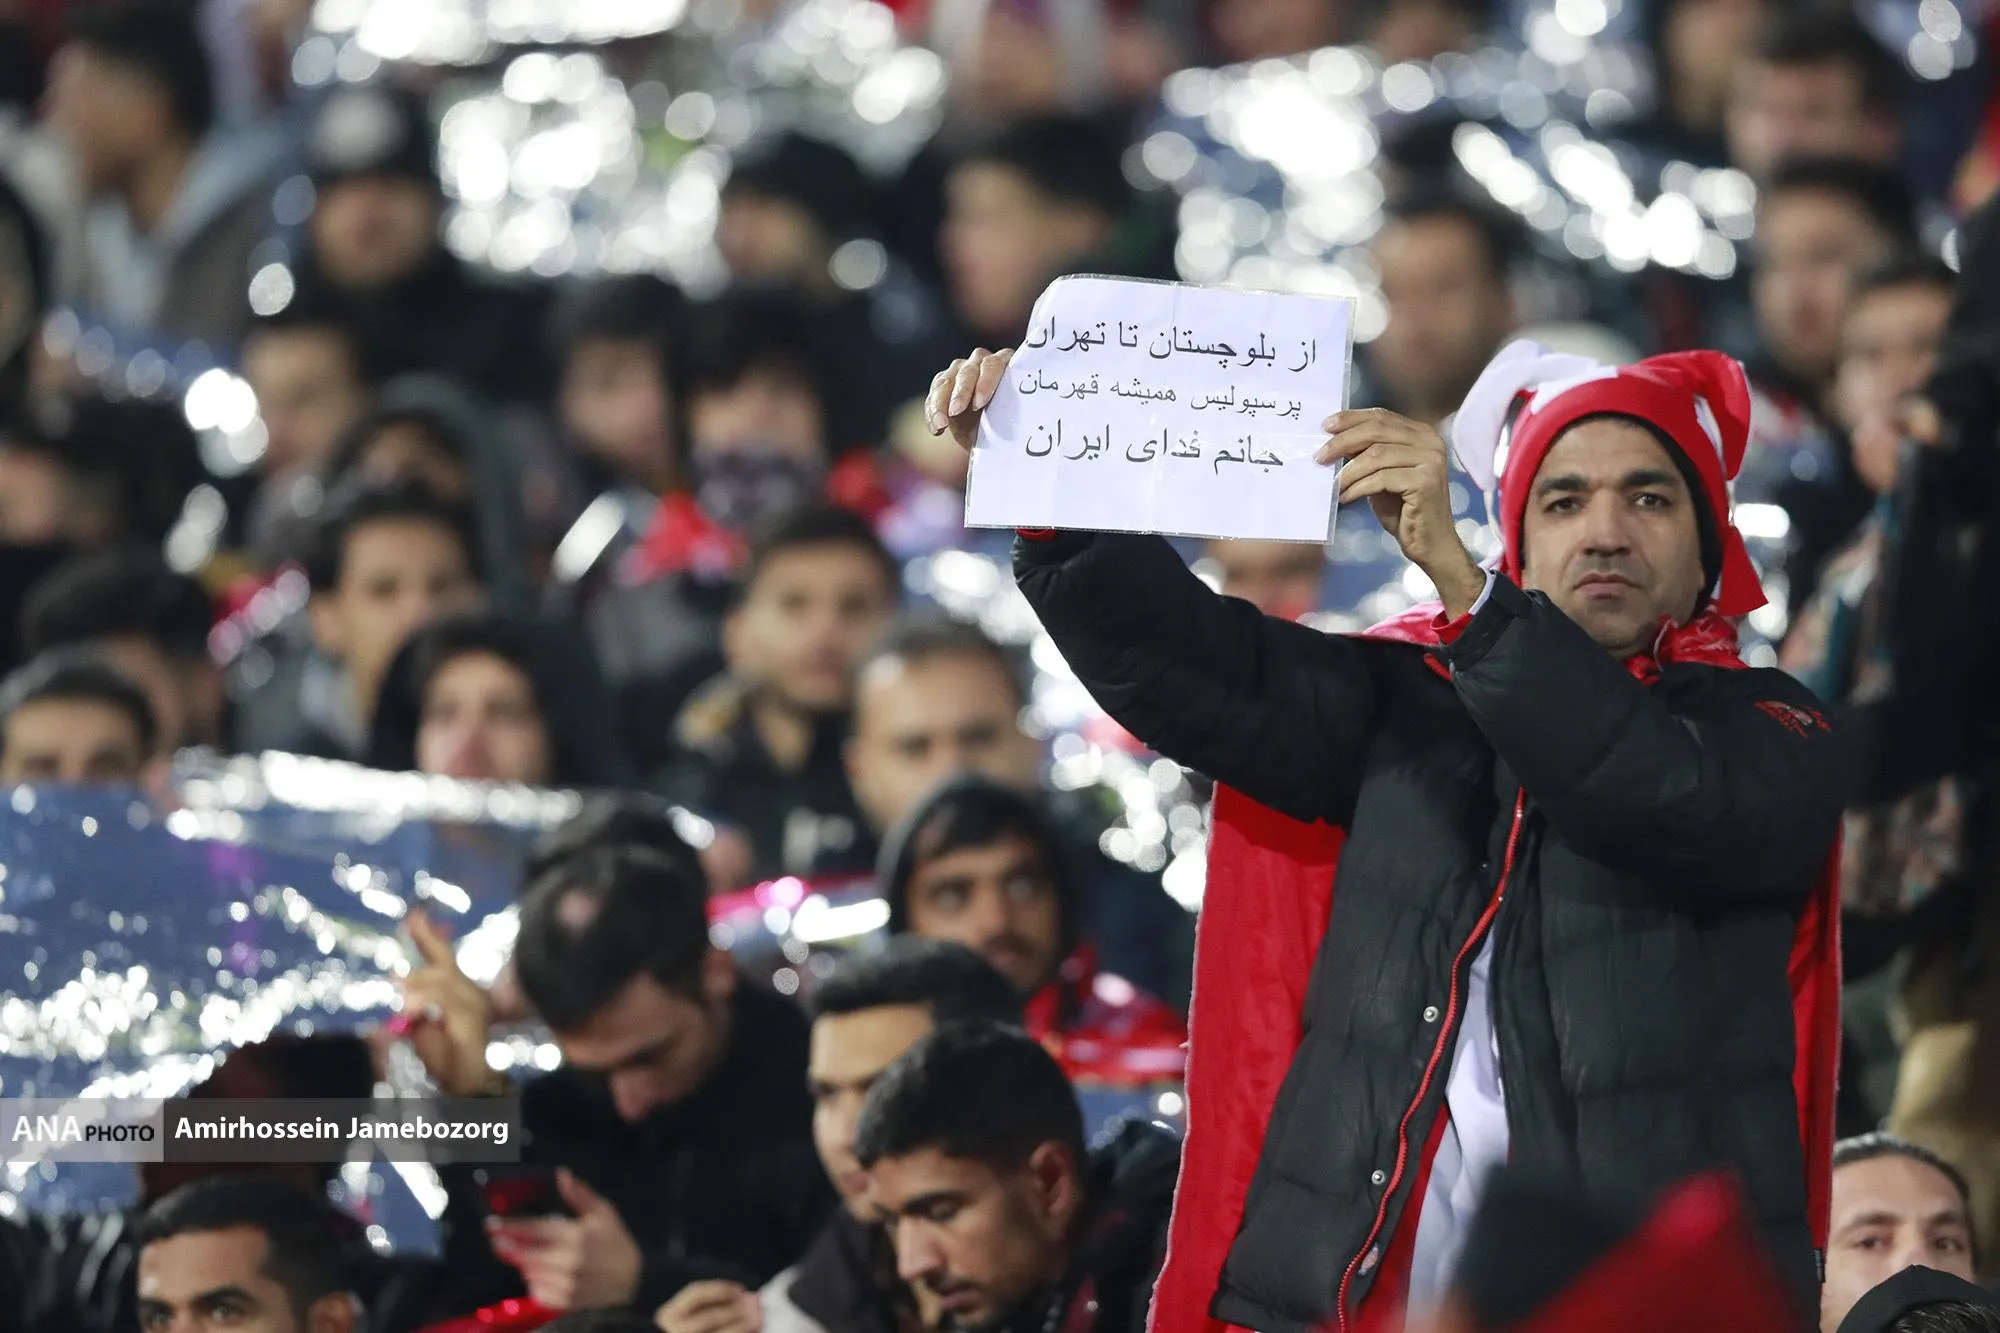 از بلوچستان تا تهران
پرسپولیس همیشه قهرمان
جانم فدای ایران
ANA PHOTO Amirhossein Jamebozorg